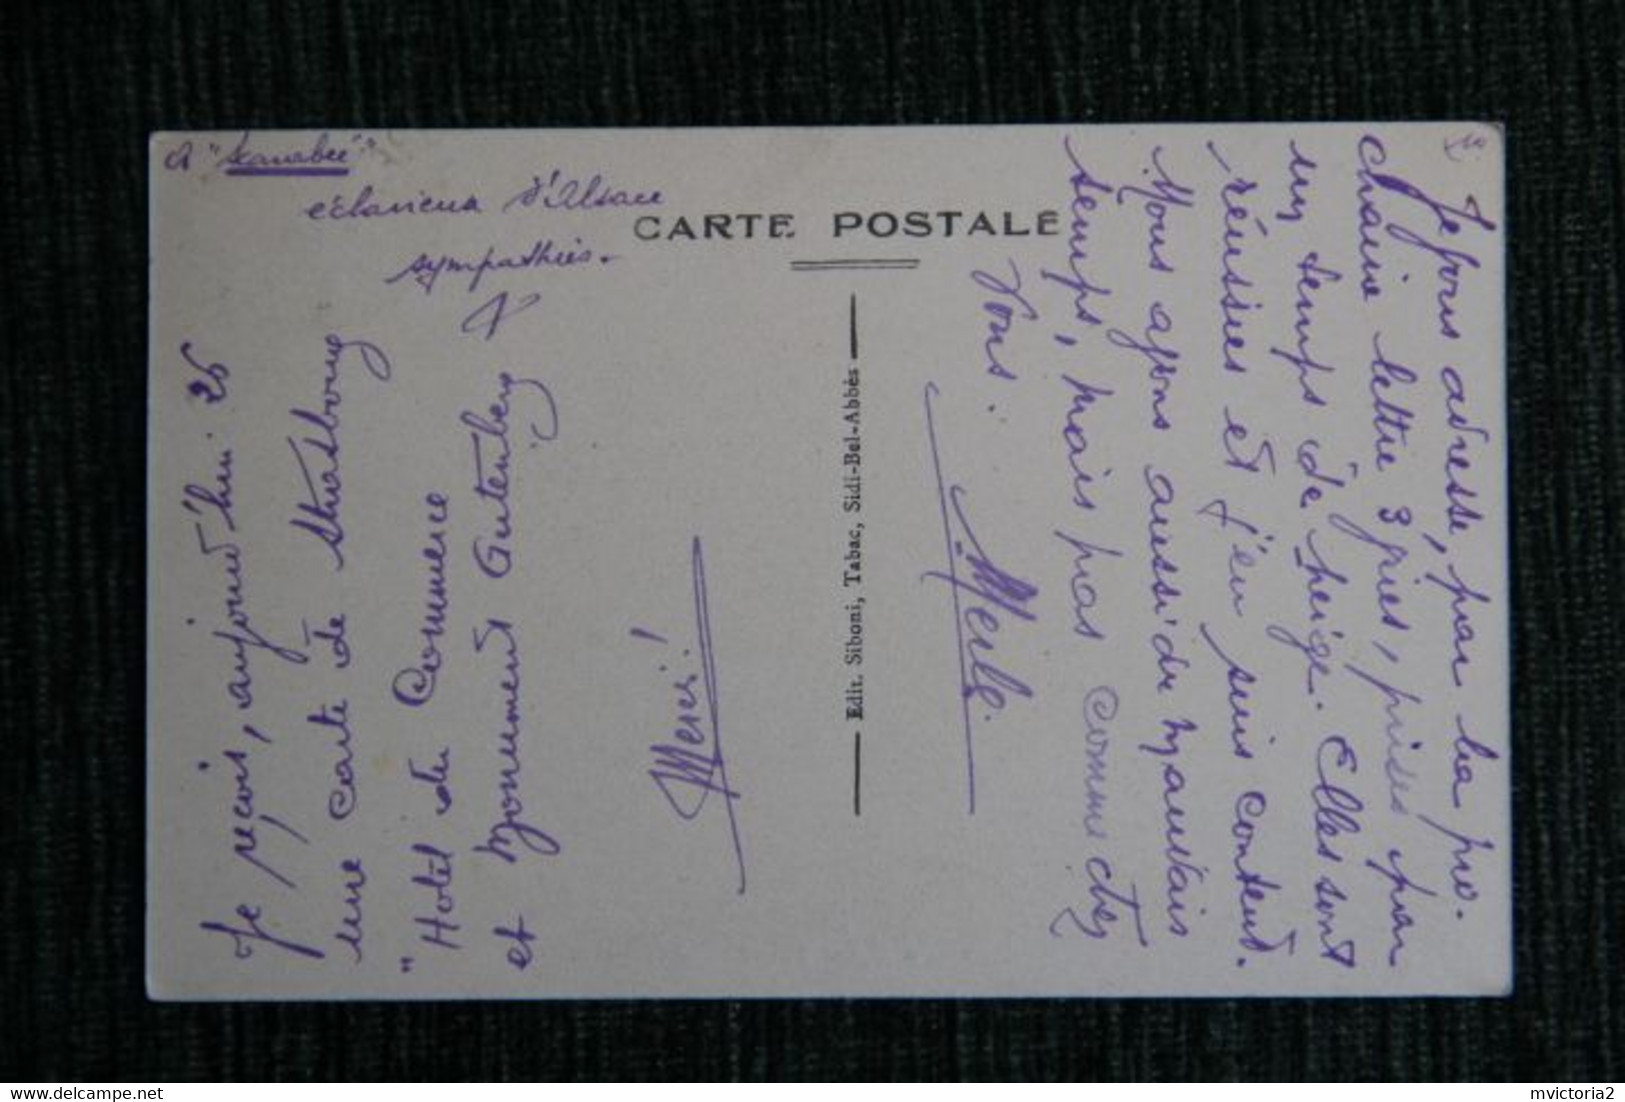 à "Scarabée"
éclaireur d'Alsace
sympathies.
CARTE POSTALE
Edit. Siboni, Tabac, Sidi-Bel-Abbès
Je vous adresse, par la pro-
chaine lettre 3 vues, prises par
un temps de neige. Elles sont
réussies et j'en suis content.
Nous avons aussi du mauvais
temps, mais pas comme chez
vous.
Merle.
Je reçois, aujourd'hui 26
une carte de Strasbourg
"Hotel du Commerce
et Monument Gutenberg
Merci!
mvictoria2